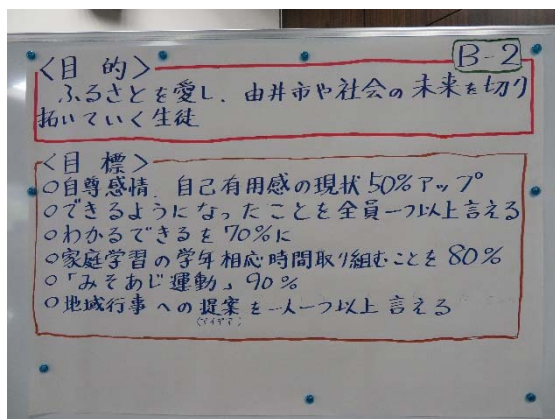 B-2
<目 的>
ふるさとを愛し、由井市や社会の未来を切り
拓いていく生徒
<目 標>
○自尊感情、自己有用感の現状50%アップ
○できるようになったことを全員一つ以上言える
○わかるできるを70%に
○家庭学習の学年相応時間取り組むことを80%
○「みそあじ運動」90%
○地域行事への提案を一人一つ以上言える